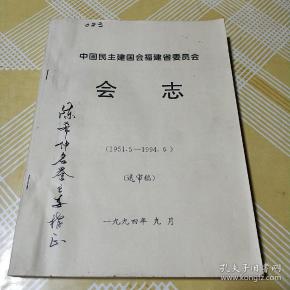 023
中国民主建国会福建省委员会
会 志
（1951.5—1994.6）
（送审稿）
一九九四年 九 月
陈希仲名誉主委指正
孔夫子旧书网